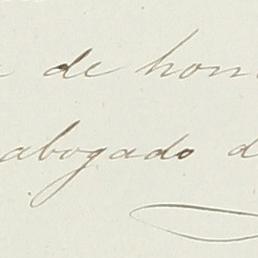 de hon
abogado d